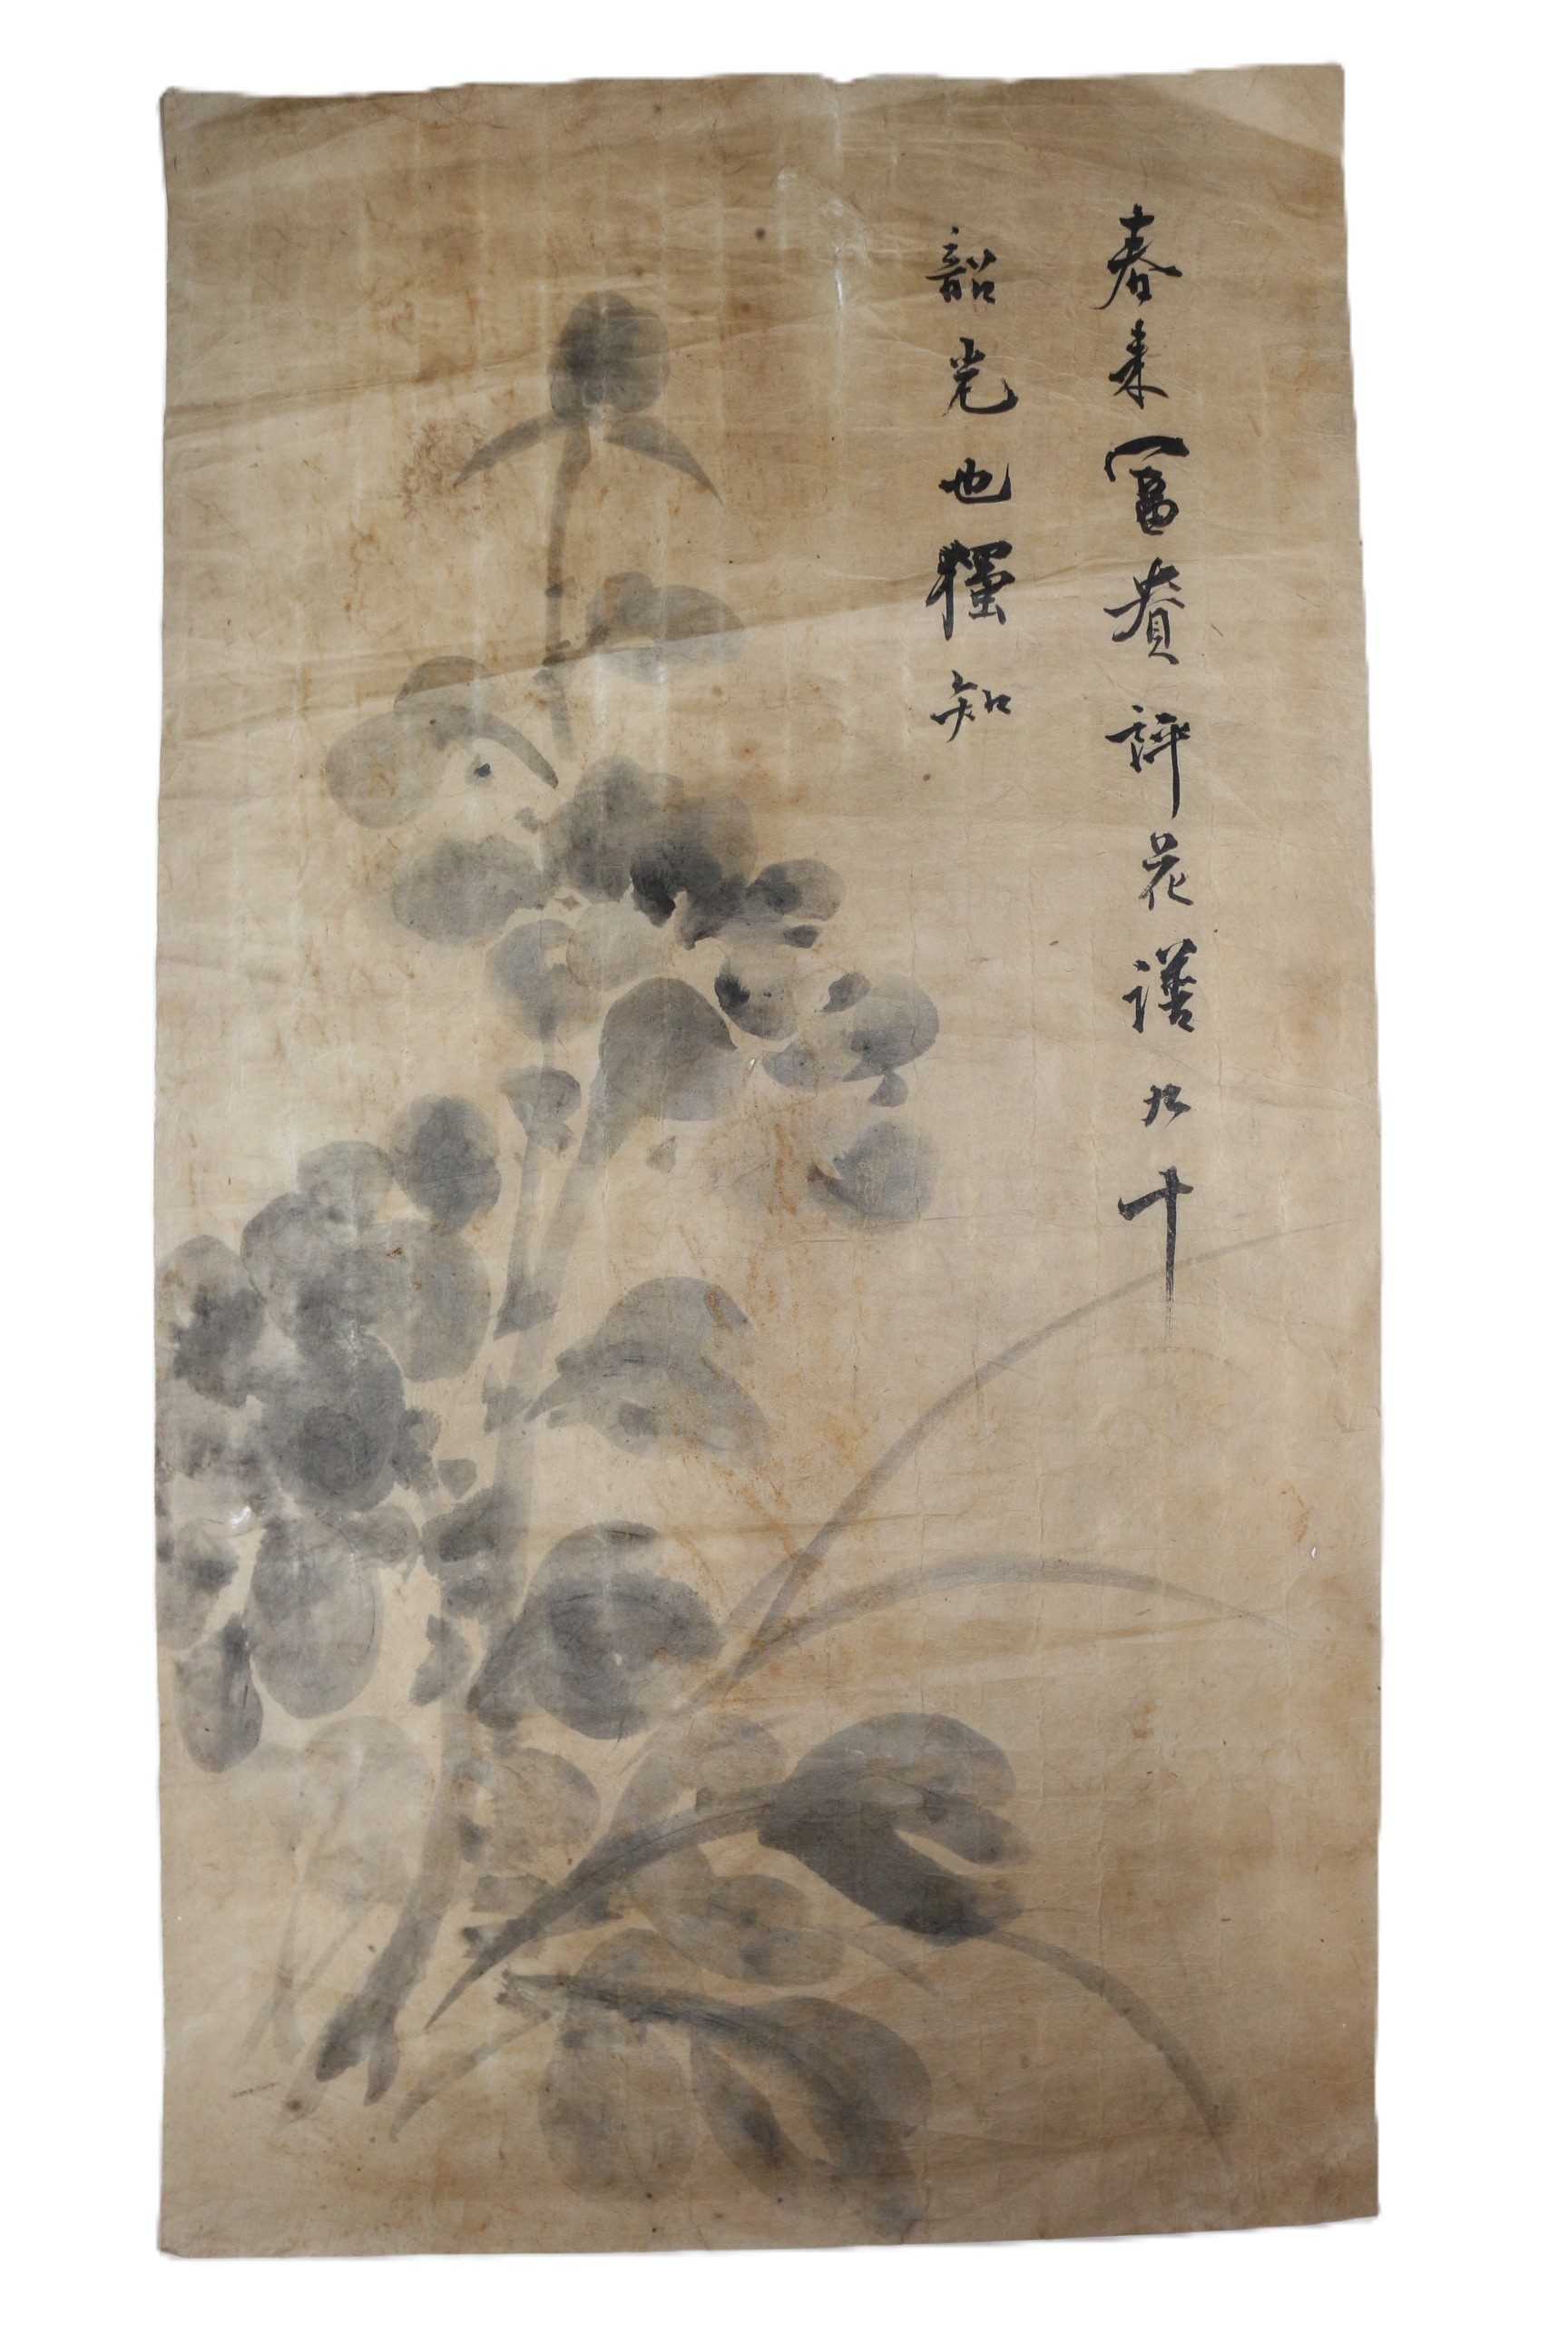 春来富貴評花譜九十
韶光也獨知